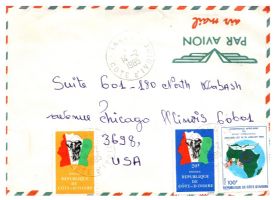 air mail
PAR AVION
1985
CÔTE D'IV
Suite 601-180 North Wabash
avenue Chicago Illinois 60601
3698,
USA
REPUBLIQUE
DE
CÔTE-D'IVOIRE
REPUBLIQUE
DE
CÔTE-D'IVOIRE
100F
REPUBLIQUE DE CÔTE D'IVOIRE